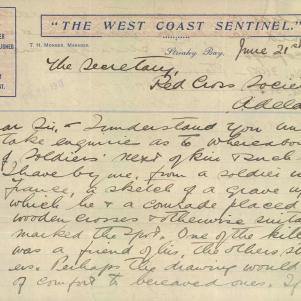 "THE WEST COAST SENTINEL."
T. H. MONGER, MANAGER.
Streaky Bay, June 21st
The Secretary,
Red Cross Socie
Adela
ar Sir, - I understand You un
take enquiries as to whereabou
of Soldiers' next of kin & such
I have by me, from a soldier in
France, a sketch of a grave u
which he & a comrade placed
wooden crosses & otherwise suita
marked the spot. One of the kille
was a friend of his, the others, st
ers. Perhaps the drawing would
of comfort to bereaved ones. If